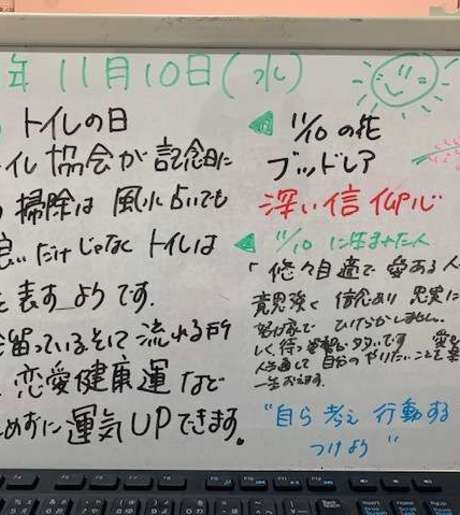 年 11月10日(水)
トイレの日
イレ協会が 記念日に
掃除は 風水占いでも
良いだけじゃなく トイレは
を表すようです.
留っている.そして 流れる所
恋愛健康運など
めずに運気UPできます。
11/10 の花
ブッドレア
深い信仰心
11/10 に生まれた人
「悠々自適で 愛ある人
意思強く 信念あり 忠実に
ひけらかしません.
しく待つ 姿勢が 多いです
人生通して 自分のやりたいことを
一生おえます.
"自ら考え 行動する
つけよう"